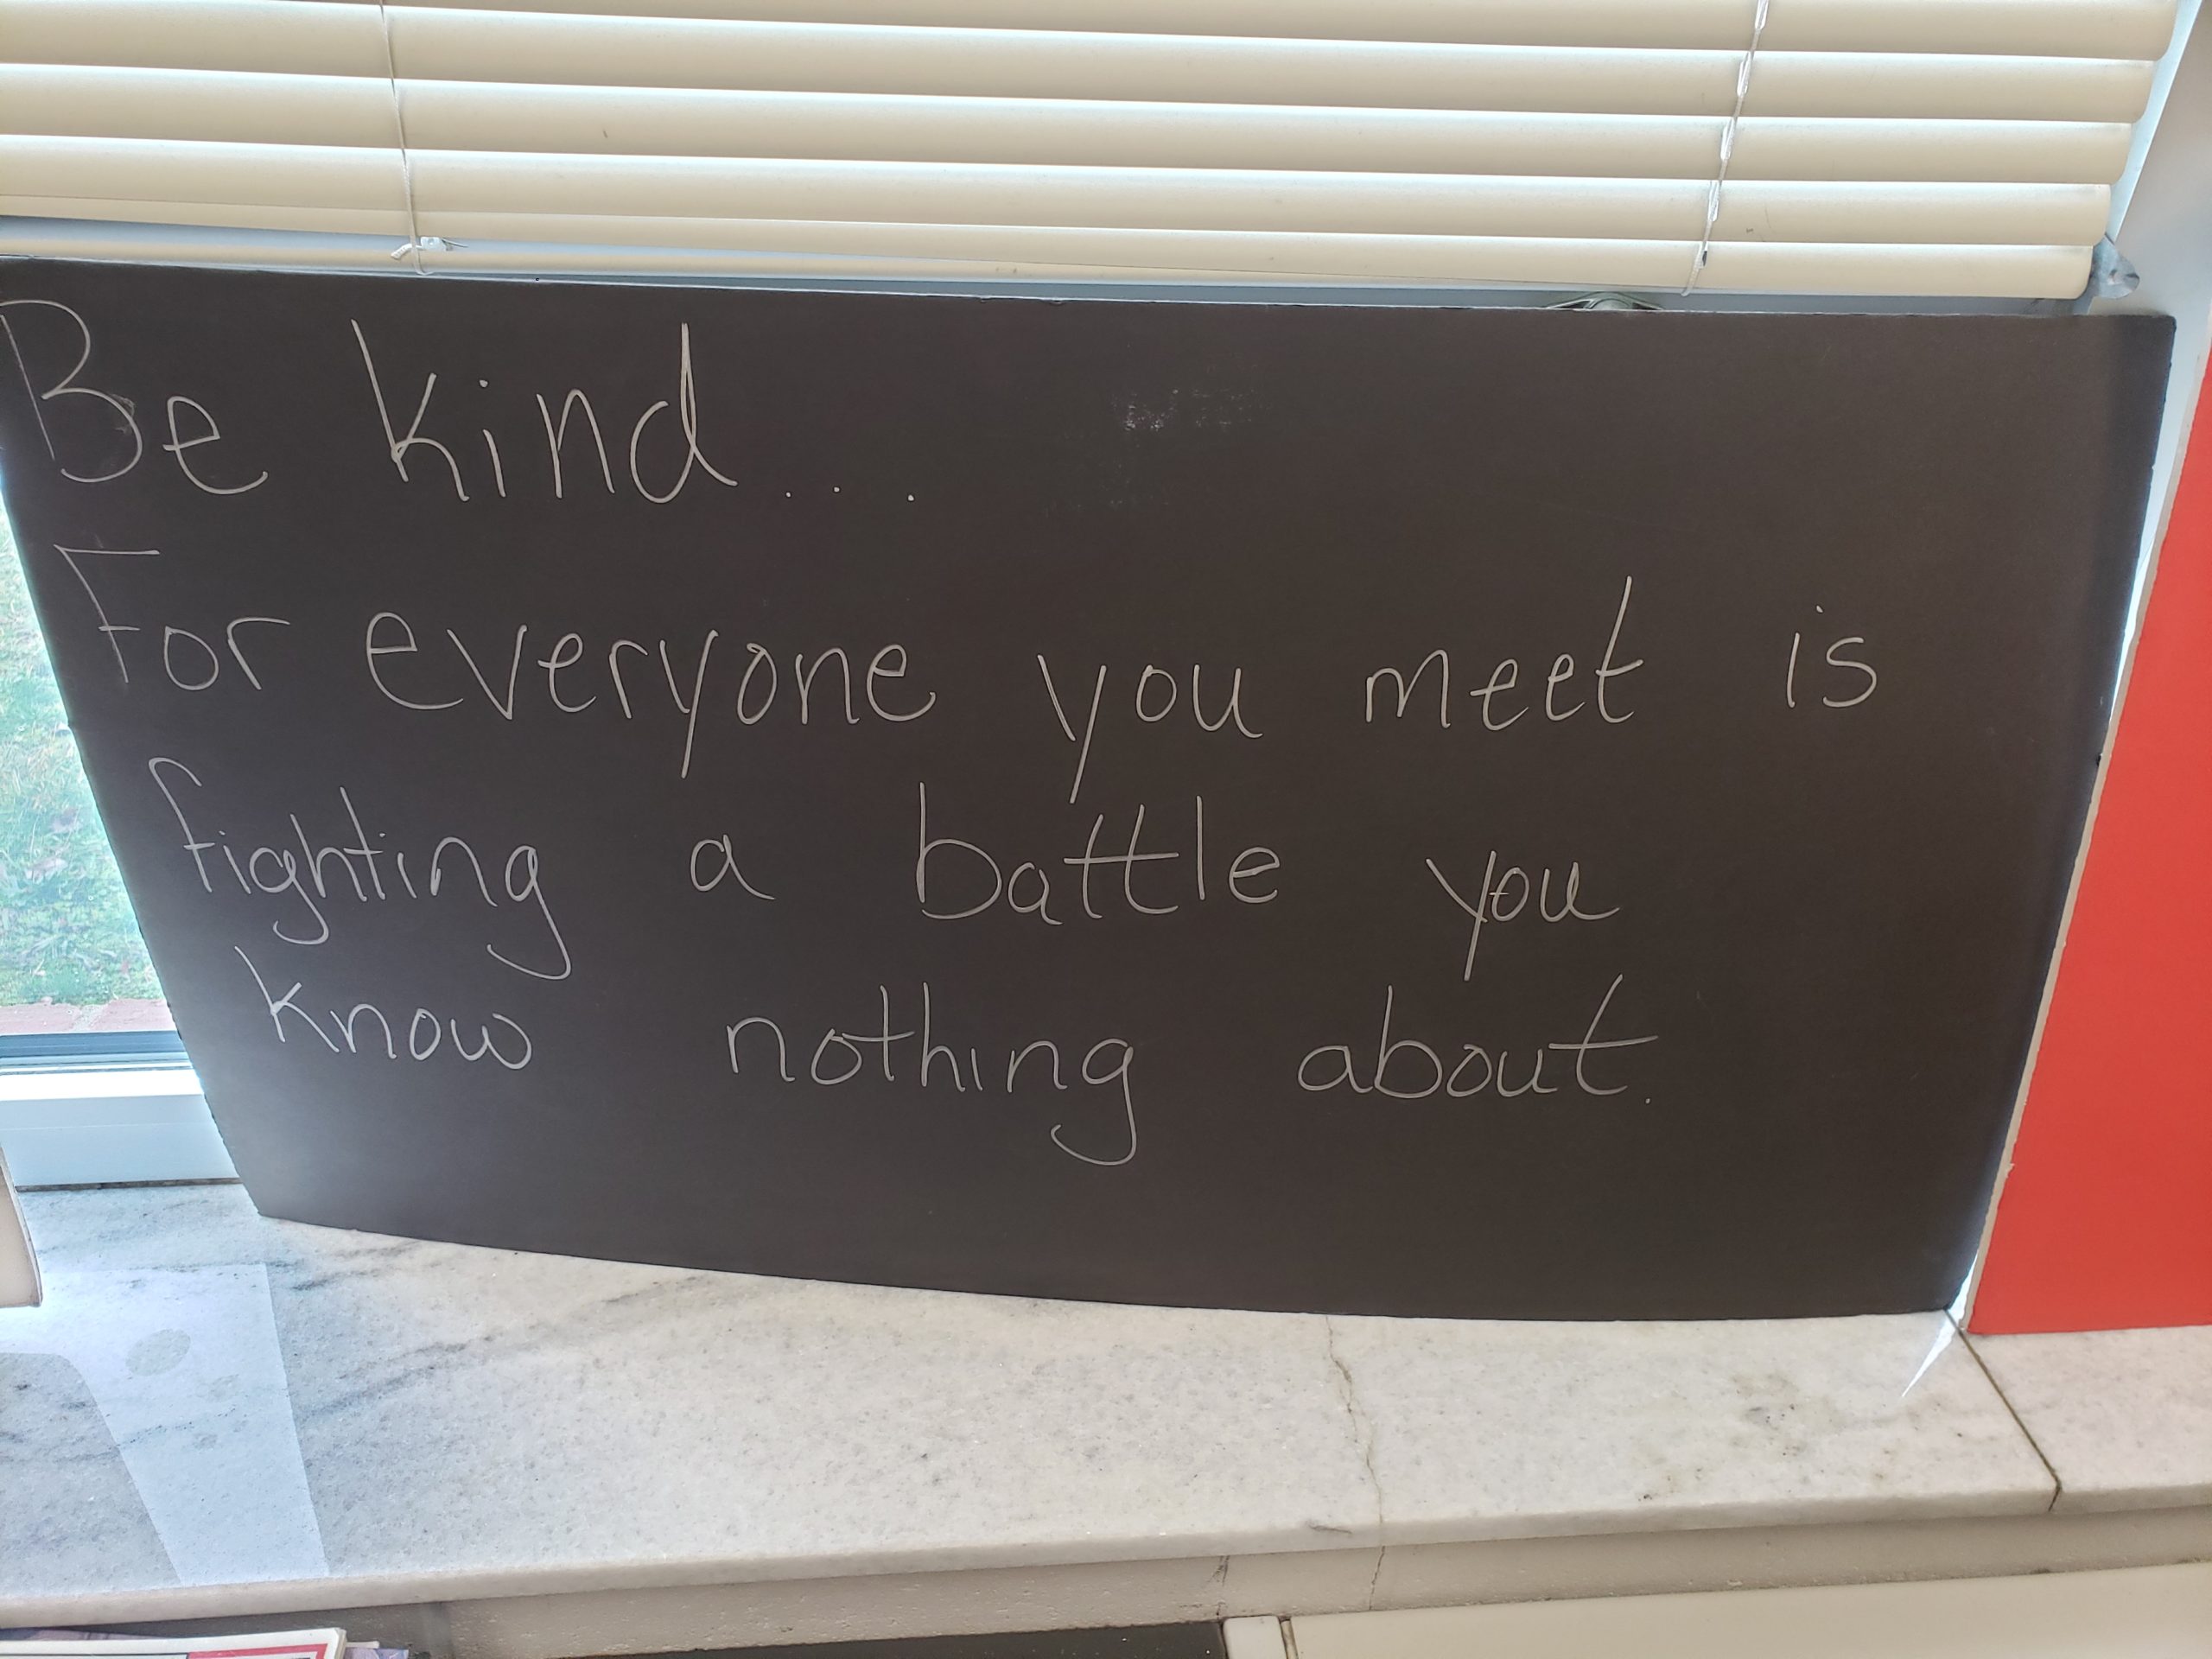 Be kind...
For everyone you meet is
fighting a battle you
know nothing about.